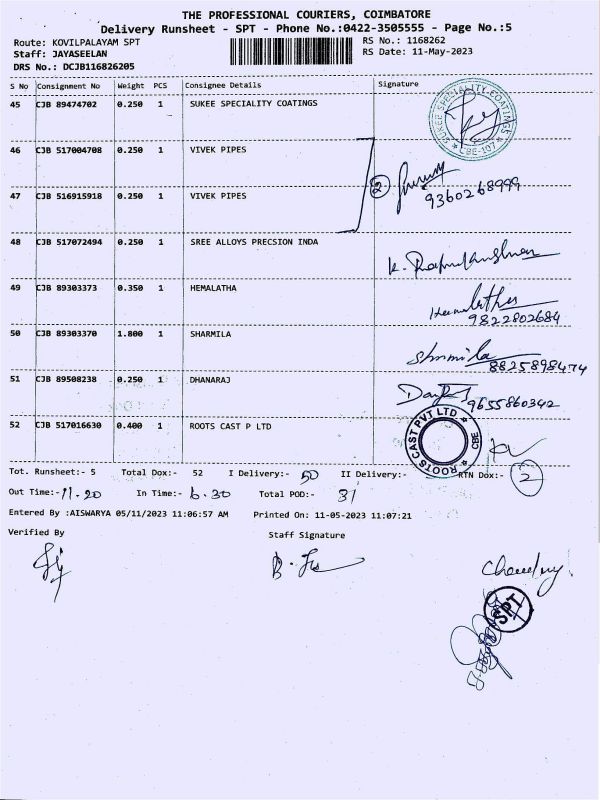 THE PROFESSIONAL COURIERS, COIMBATORE
Delivery Runsheet - SPT - Phone No.:0422-3505555 - Page No.:5
Route: KOVILPALAYAM SPT
Staff: JAYASEELAN
DRS No.: DCJB116826205
RS No.: 1168262
RS Date: 11-May-2023
S No Consignment No Weight PCS Consignee Details Signature
45 CJB 89474702 0.250 1 SUKEE SPECIALITY COATINGS
SUKEE SPECIALITY COATINGS * CBE-107 *
46 CJB 517004708 0.250 1 VIVEK PIPES
47 CJB 516915918 0.250 1 VIVEK PIPES
2
9360268999
48 CJB 517072494 0.250 1 SREE ALLOYS PRECSION INDA
K. Ramakrishnan
49 CJB 89303373 0.350 1 HEMALATHA
Hemalatha
9822802684
50 CJB 89303370 1.800 1 SHARMILA
Sharmila
8825898474
51 CJB 89508238 0.250 1 DHANARAJ
9655860342
52 CJB 517016630 0.400 1 ROOTS CAST P LTD
ROOTS CAST PVT LTD * CBE *
Tot. Runsheet:- 5 Total Dox:- 52 I Delivery:- 50 II Delivery:- RTN Dox:- 2
Out Time:- 11.20 In Time:- 6.30 Total POD:- 31
Entered By :AISWARYA 05/11/2023 11:06:57 AM Printed On: 11-05-2023 11:07:21
Verified By Staff Signature
SPT